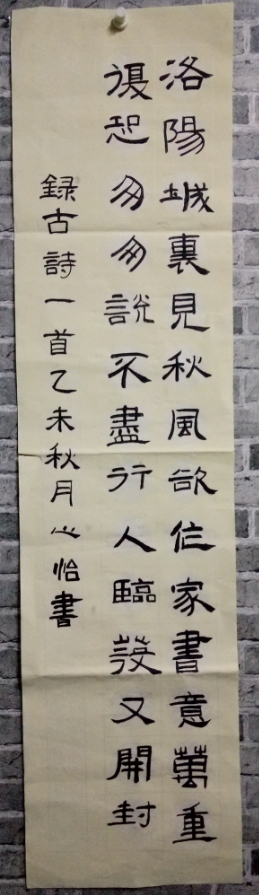 洛陽城裏見秋風欲作家書意萬重
復恐匆匆說不盡行人臨發又開封
録古詩一首乙未秋月心怡書